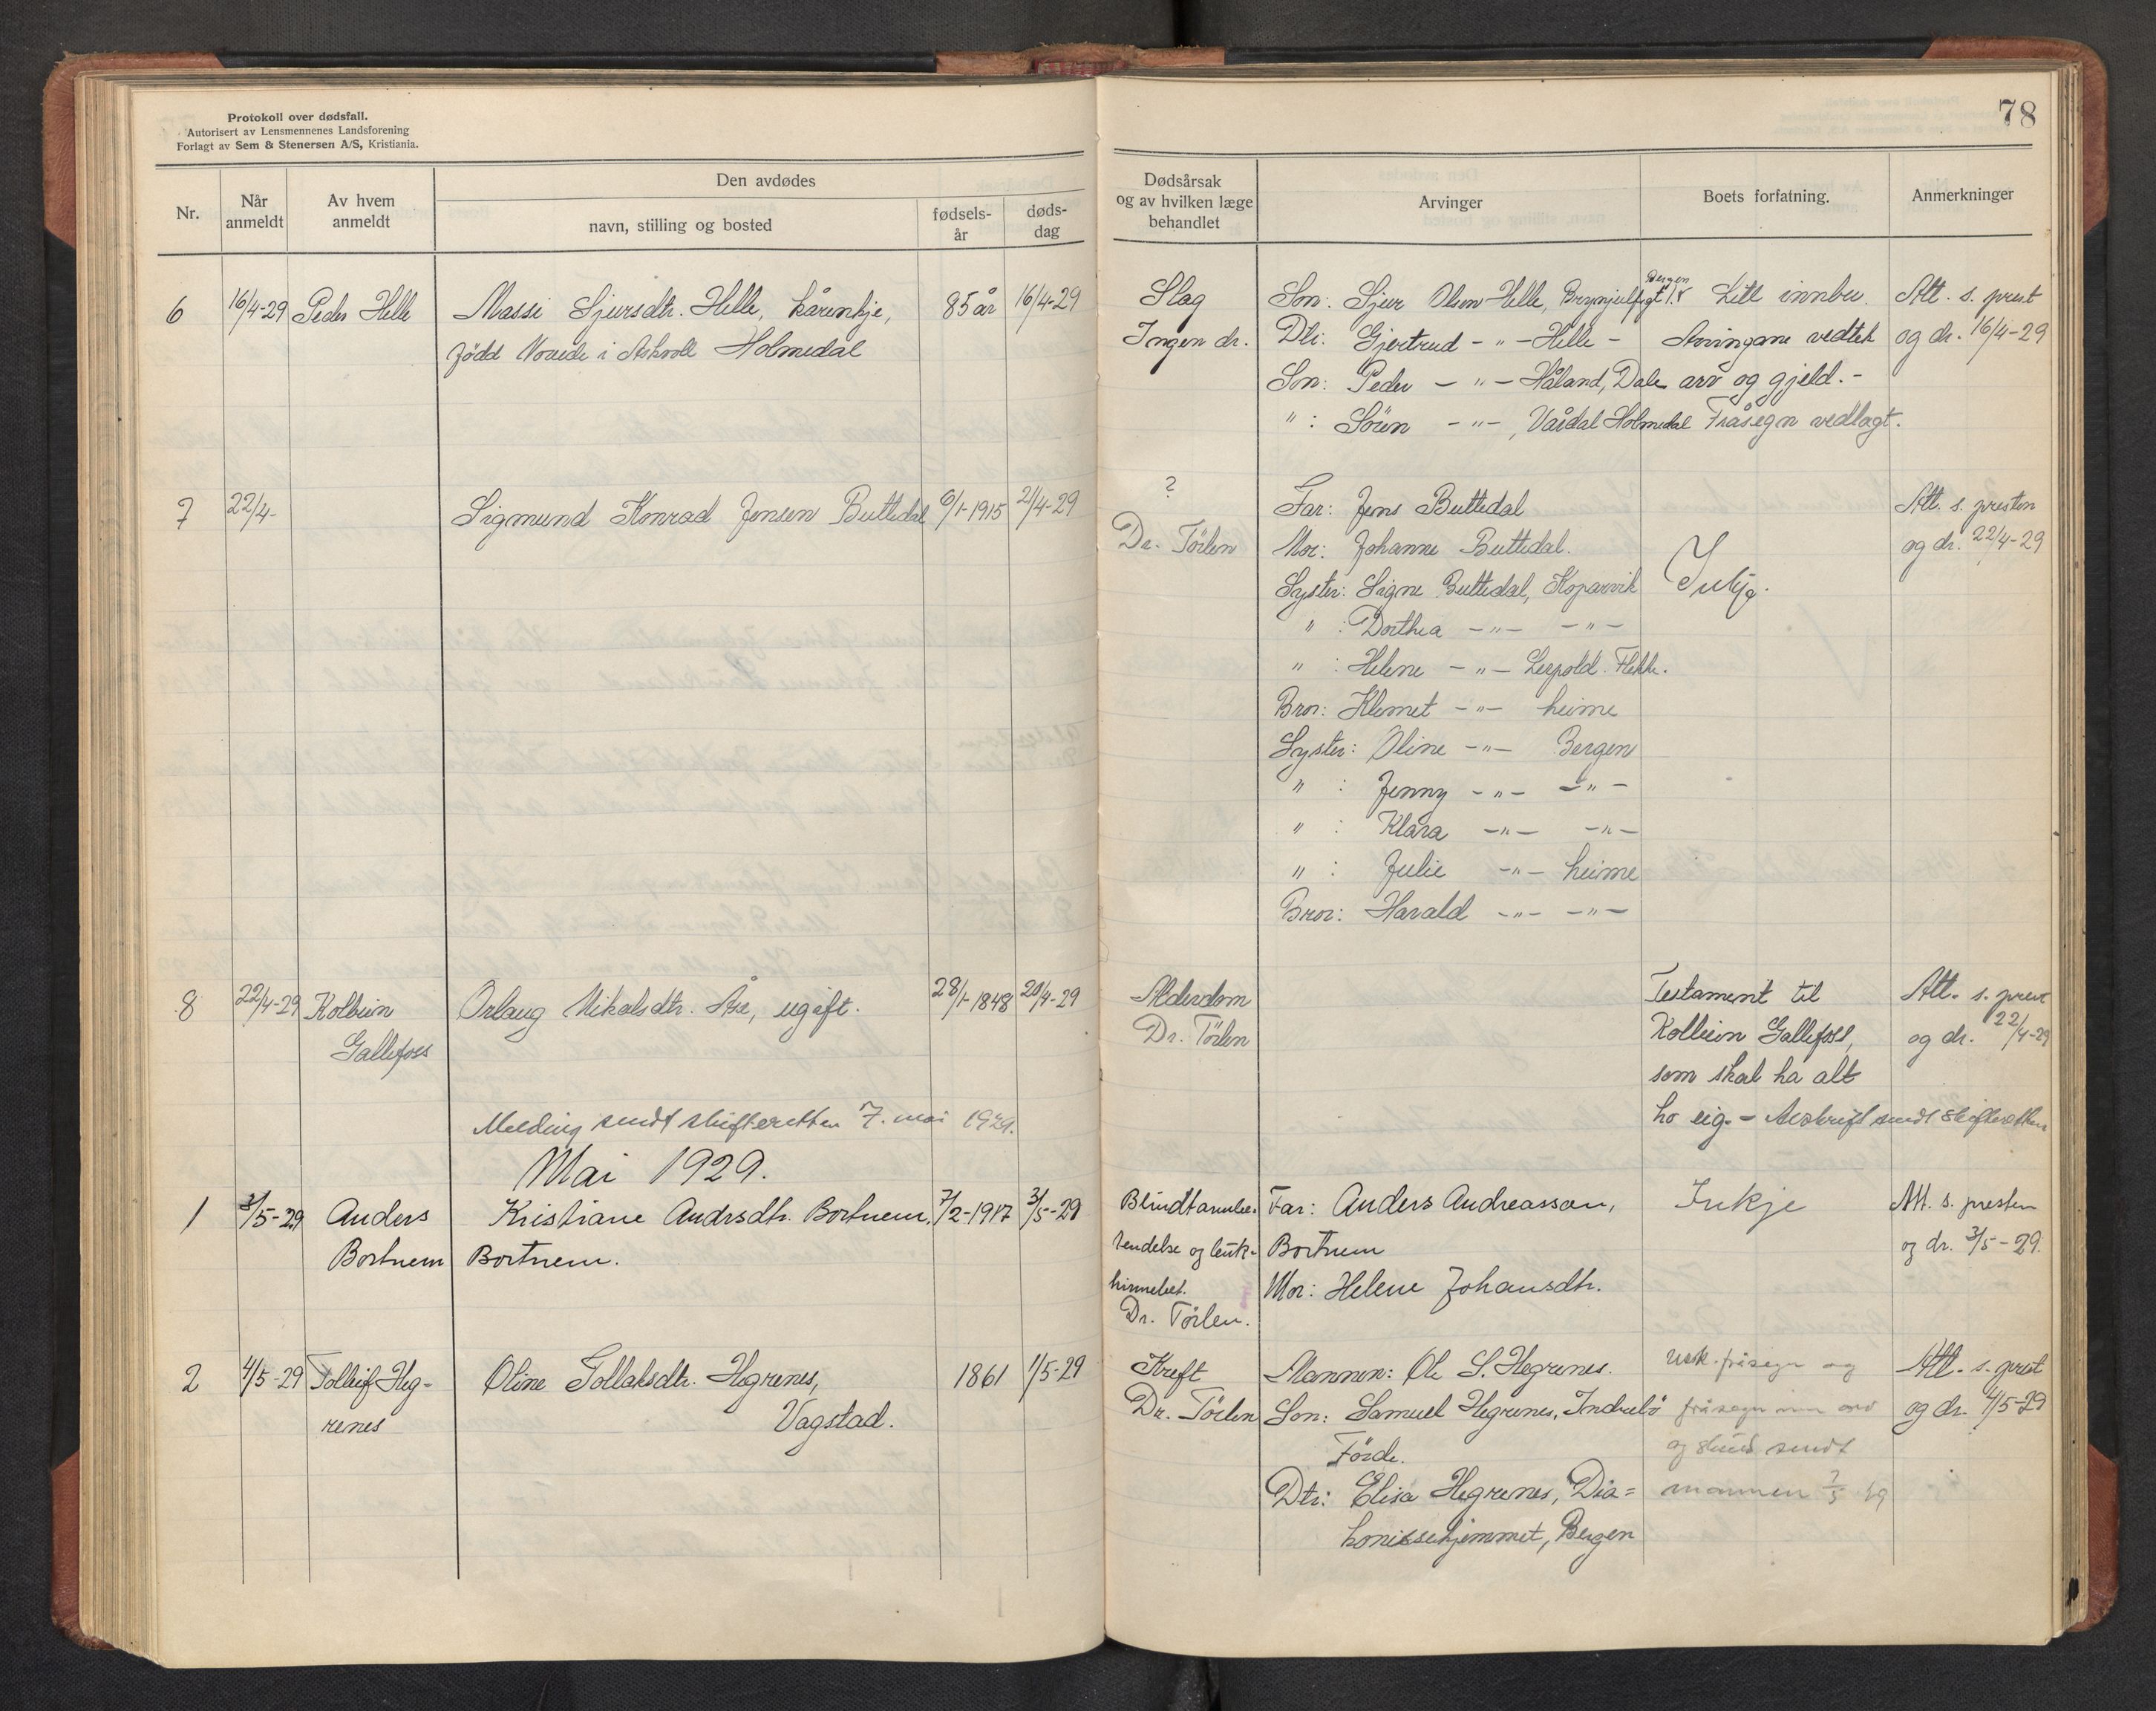 Protokoll over dødsfall.
Autorisert av Lensmennenes Landsforening
Forlagt av Sem & Stenersen A/S, Kristiania.
Nr.
Når anmeldt
Av hvem anmeldt
Den avdødes
navn, stilling og bosted
fødsels-år
døds-dag
6 16/4-29 Peder Helle Massi Sjursdtr. Helle, kårenkje, 85 år 16/4-29
född i Askvoll Holmedal
7 22/4- Sigmund Konrad Jensen Buttedal 6/1-1915 21/4-29
8 22/4-29 Kolbein Orlaug Nikalsdtr. Åse, ugift. 28/1-1848 20/4-29
Gallefoss
Melding sendt skifteretten 7. mai 1929.
Mai 1929.
1 3/5-29 Anders Kristiane Andrsdtr. Bortnem, 7/2-1917 3/5-29
Bortnem Bortnem.
2 4/5-29 Tolleif Heg- Oline Tollaksdtr. Hegrenes, 1861 1/5-29
renes Vagstad.
78
Dødsårsak og av hvilken læge behandlet
Arvinger
Boets forfatning.
Anmerkninger
Bergen
Slag Son: Sjur Olsen Helle, Litt innbu. Att. s. prest
Ingen dr. Dtr: Gjertrud -"- Helle - Arvingane vedtek og dr. 16/4-29
Son: Peder -"- Håland, Dale arv og gjeld.-
" : Sören -"-, Vårdal Holmedal Fråsegn vedlagt.
? Far: Jens Buttedal Att. s. presten
Dr. Törlen Mor: Johanne Buttedal. og dr. 22/4-29
Syster: Signe Buttedal, Koparvik Inkje.
" : Dorthea -"- -"-
" : Helene -"- Leypold. Flekke.
Bror: Klemet -"- heime
Syster: Oline -"- Bergen
" : Jenny -"- -"-
" : Klara -"- -"-
" : Julie -"- heime
Bror: Harald -"- -"-
Alderdom Testament til Att. s. prest
Dr. Törlen Kolbein Gallefoss, og dr. 22/4-29
som skal ha alt
ho eig. - Avskrift sendt skifteretten
Blindtarmbe- Far: Anders Andreasson, Inkje Att. s. presten
tendelse og buk- Bortnem og dr. 3/5-29.
hinnebet. Mor: Helene Johansdtr.
Dr. Törlen.
Kreft Mannen: Ole S. Hegrenes. fråsegn og Att. s. prest
Dr. Törlen Son: Samuel Hegrenes, Indrebö fråsegn og dr. 4/5-29
Förde. og sendt
Dtr: Elisa Hegrenes, Dia= mannen
konissehjemmet, Bergen